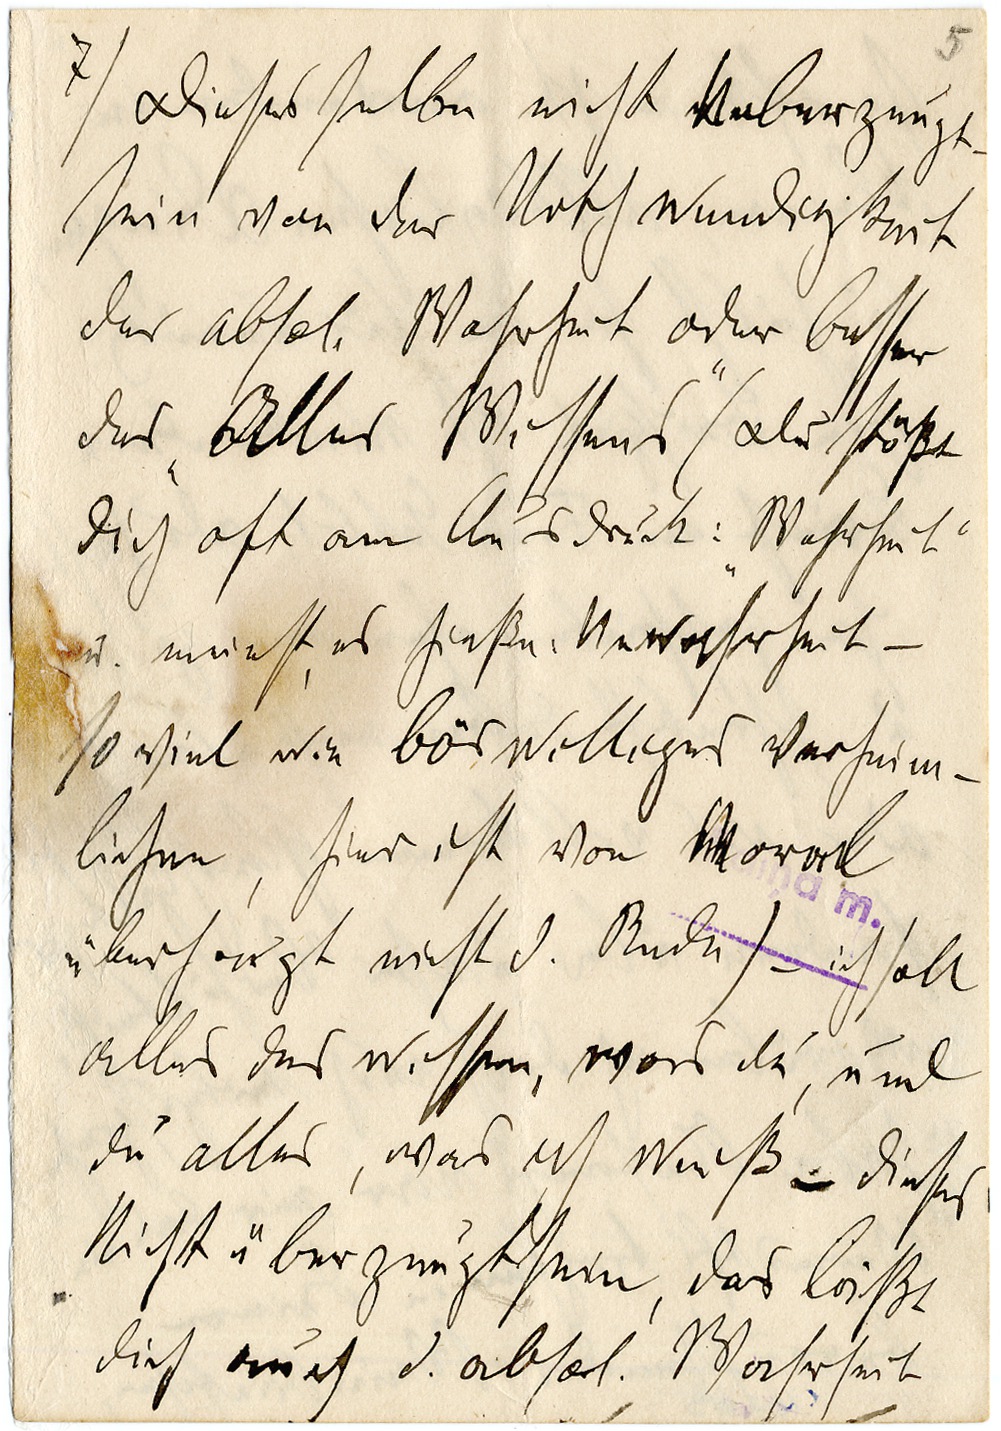 5
7/ Dieses selbe nicht Ueberzeugt-
sein von der Nothwendigkeit
der absol. Wahrheit oder besser
des „Alles Wissens“ (Du stößt
dich oft am Ausdruck: „Wahrheit“
u. meinst, es hieße: Unwahrheit –
so viel wie böswilliges Verheim-
lichen, hier ist von Moral
überhaupt nicht d. Rede) – ich soll
alles das wissen, was du, und
du alles, was ich weiß – dieses
Nicht überzeugtsein, das läßt
dich auch d. absol. Wahrheit